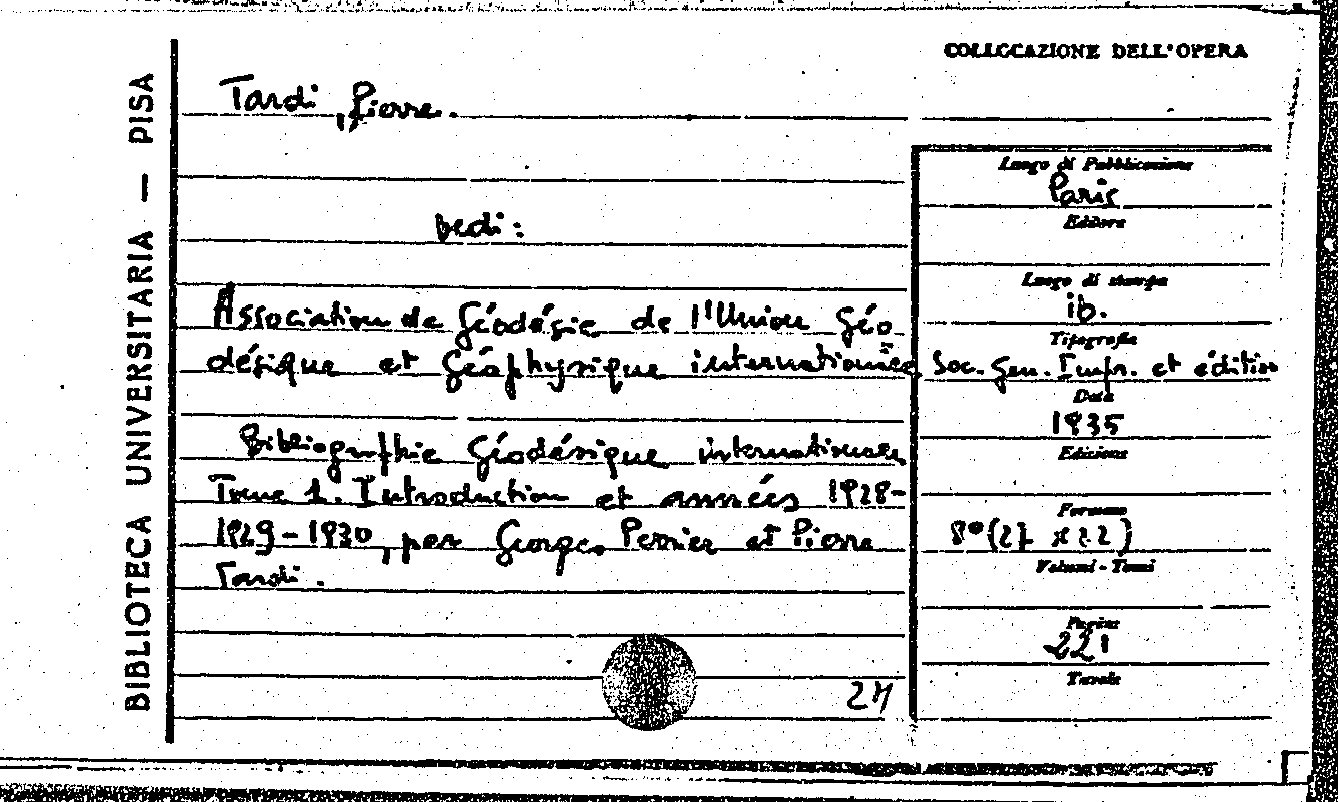 BIBLIOTECA UNIVERSITARIA — PISA
COLLOCAZIONE DELL'OPERA
Tardi, Pierre.
vedi:
Association de Géodésie de l'Union Géo
désique et Géophysique internationale
Bibliographie Géodésique internationale
Tome 1. Introduction et années 1928-
1929-1930, par Georges Perrier et Pierre
Tardi.
24
Luogo di Pubblicazione
Paris
Editore
Luogo di stampa
ib.
Tipografia
Soc. Gen. Impr. et édition
Data
1935
Edizione
Formato
8° (27 x 22)
Volumi - Tomi
Pagine
221
Tavole